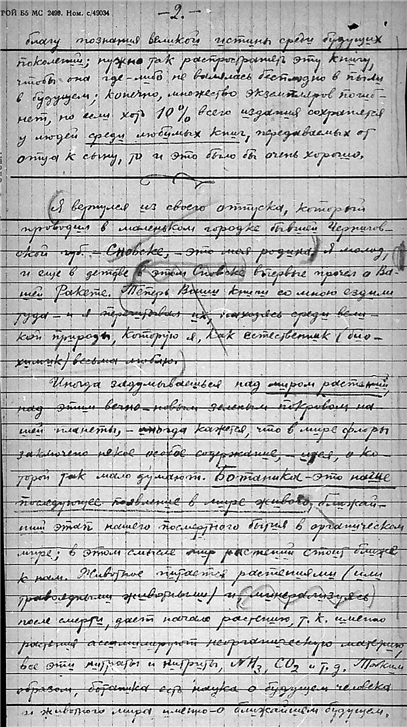 ТРОЙ Б5 МС 2498. Ном. с/49034
— 2. —
благу познания великой истины среди будущих
поколений; нужно так распространять эту книгу,
чтобы она где-либо не валялась бесплодно в пыли
в будущем; конечно, множество экземпляров погиб-
нет, но если хоть 10% всего издания сохранятся
у людей среди любимых книг, передаваемых от
отца к сыну, то и это было бы очень хорошо.
Я вернулся из своего отпуска, который
проводил в маленьком городке бывшей Чернигов-
ской губ. – Сновске, – это моя родина, я молод,
и еще в детстве в этом Сновске впервые прочел о Ва-
шей Ракете. Теперь Ваши книги со мною ездили
туда – и я перечитывал их, находясь среди вели-
кой природы, которую я, как естественник (био-
химик) весьма люблю.
Иногда задумываешься над миром растений,
над этим вечно-новым зеленым покровом на-
шей планеты, – иногда кажется, что в мире флоры
заключено некое особое содержание, – идея, о ко-
торой так мало думают. Ботаника – это наше
последующее появление в мире живого, ближай-
ший этап нашего посмертного бытия в органическом
мире; в этом смысле мир растений стоит ближе
к нам. Животное питается растениями (или
травоядными животными) и минерализуясь
после смерти, дает начало растению, т. к. именно
растения ассимилируют неорганическую материю,
все эти нитраты и нитриты, NH3, CO2 и т. д. Таким
образом, ботаника есть наука о будущем человека
и животного мира именно о ближайшем будущем.